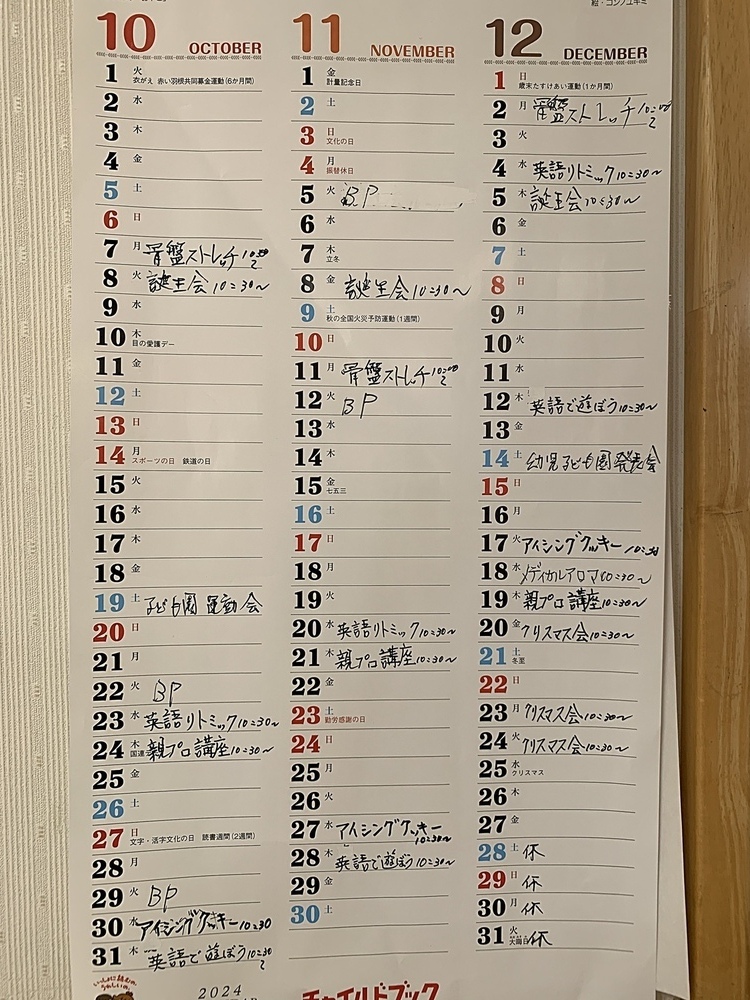 10 OCTOBER
1 火 衣がえ 赤い羽根共同募金運動(6か月間)
2 水
3 木
4 金
5 土
6 日
7 月 骨盤ストレッチ10:00〜
8 火 誕生会10:30〜
9 水
10 木 目の愛護デー
11 金
12 土
13 日
14 月 スポーツの日 鉄道の日
15 火
16 水
17 木
18 金
19 土 子ども園 運動会
20 日
21 月
22 火 BP
23 水 英語リトミック10:30〜
24 木 親プロ講座10:30〜
25 金
26 土
27 日 文字・活字文化の日 読書週間(2週間)
28 月
29 火 BP
30 水 アイシングクッキー10:30
31 木 英語で遊ぼう10:30〜
2024
11 NOVEMBER
1 金 計量記念日
2 土
3 日 文化の日
4 月 振替休日
5 火 BP
6 水
7 木 立冬
8 金 誕生会10:30〜
9 土 秋の全国火災予防運動(1週間)
10 日
11 月 骨盤ストレッチ10:00〜
12 火 BP
13 水
14 木
15 金 七五三
16 土
17 日
18 月
19 火
20 水 英語リトミック10:30〜
21 木 親プロ講座10:30〜
22 金
23 土 勤労感謝の日
24 日
25 月
26 火
27 水 アイシングクッキー10:30〜
28 木 英語で遊ぼう10:30〜
29 金
30 土
チャイルドブック
12 DECEMBER
1 日 歳末たすけあい運動(1か月間)
2 月 骨盤ストレッチ10:00〜
3 火
4 水 英語リトミック10:30〜
5 木 誕生会10:30〜
6 金
7 土
8 日
9 月
10 火
11 水
12 木 英語で遊ぼう10:30〜
13 金
14 土 幼児子ども園発表会
15 日
16 月
17 火 アイシングクッキー10:30
18 水 メディカルアロマ10:30〜
19 木 親プロ講座10:30〜
20 金 クリスマス会10:30〜
21 土 冬至
22 日
23 月 クリスマス会10:30〜
24 火 クリスマス会10:30〜
25 水 クリスマス
26 木
27 金
28 土 休
29 日 休
30 月 休
31 火 大晦日 休